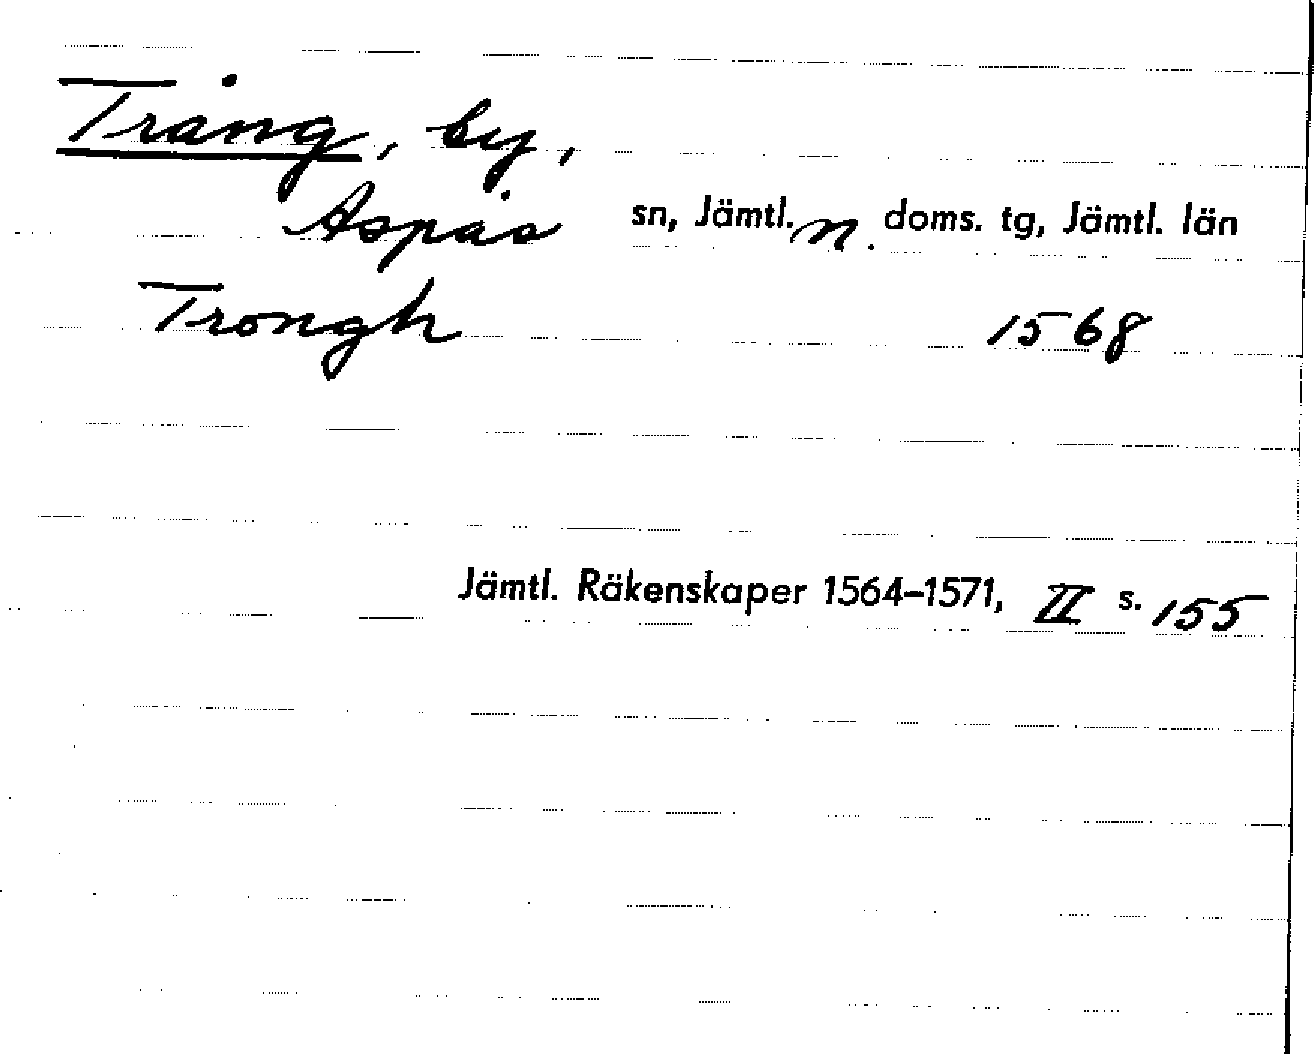 Trång, by,
Aspås sn, Jämtl. n. doms. tg, Jämtl. län
Trongh 1568
Jämtl. Räkenskaper 1564-1571, II s. 155